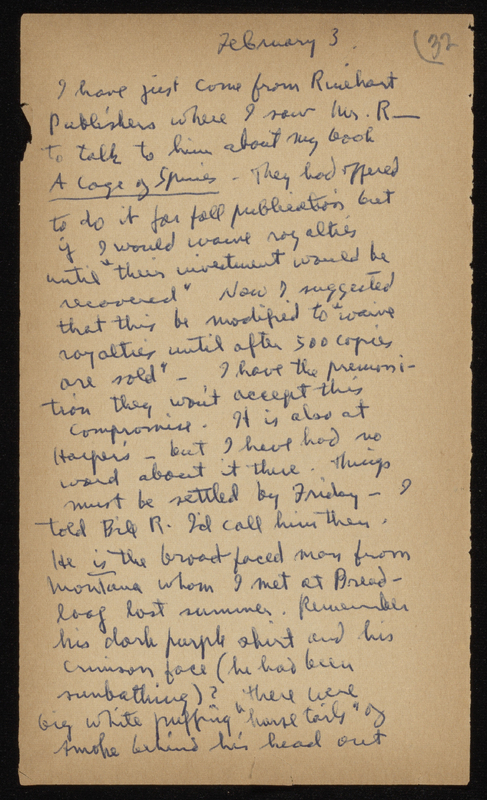 February 3.
(32
I have just come from Rinehart
Publishers where I saw Mr. R—
to talk to him about my book
A Cage of Spines - They had offered
to do it for fall publication but
if I would waive royalties
until "their investment would be
recovered" Now I suggested
that this be modified to "waive
royalties until after 500 copies
are sold" - I have the premoni-
tion they won't accept this
compromise. It is also at
Harper's - but I have had no
word about it there. Things
must be settled by Friday - I
told Bill R. I'd call him then.
He is the broad faced man from
Montana whom I met at Bread-
loaf last summer. Remember
his dark purple shirt and his
crimson face (he had been
sunbathing)? There were
big white puffing "horse tails" of
smoke behind his head out